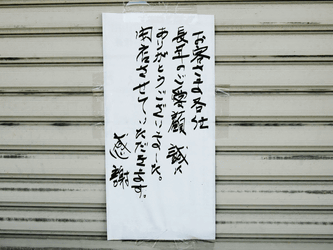 お客さま各位
長年のご愛顧 誠に
ありがとうございました。
閉店させていただきます。
感謝